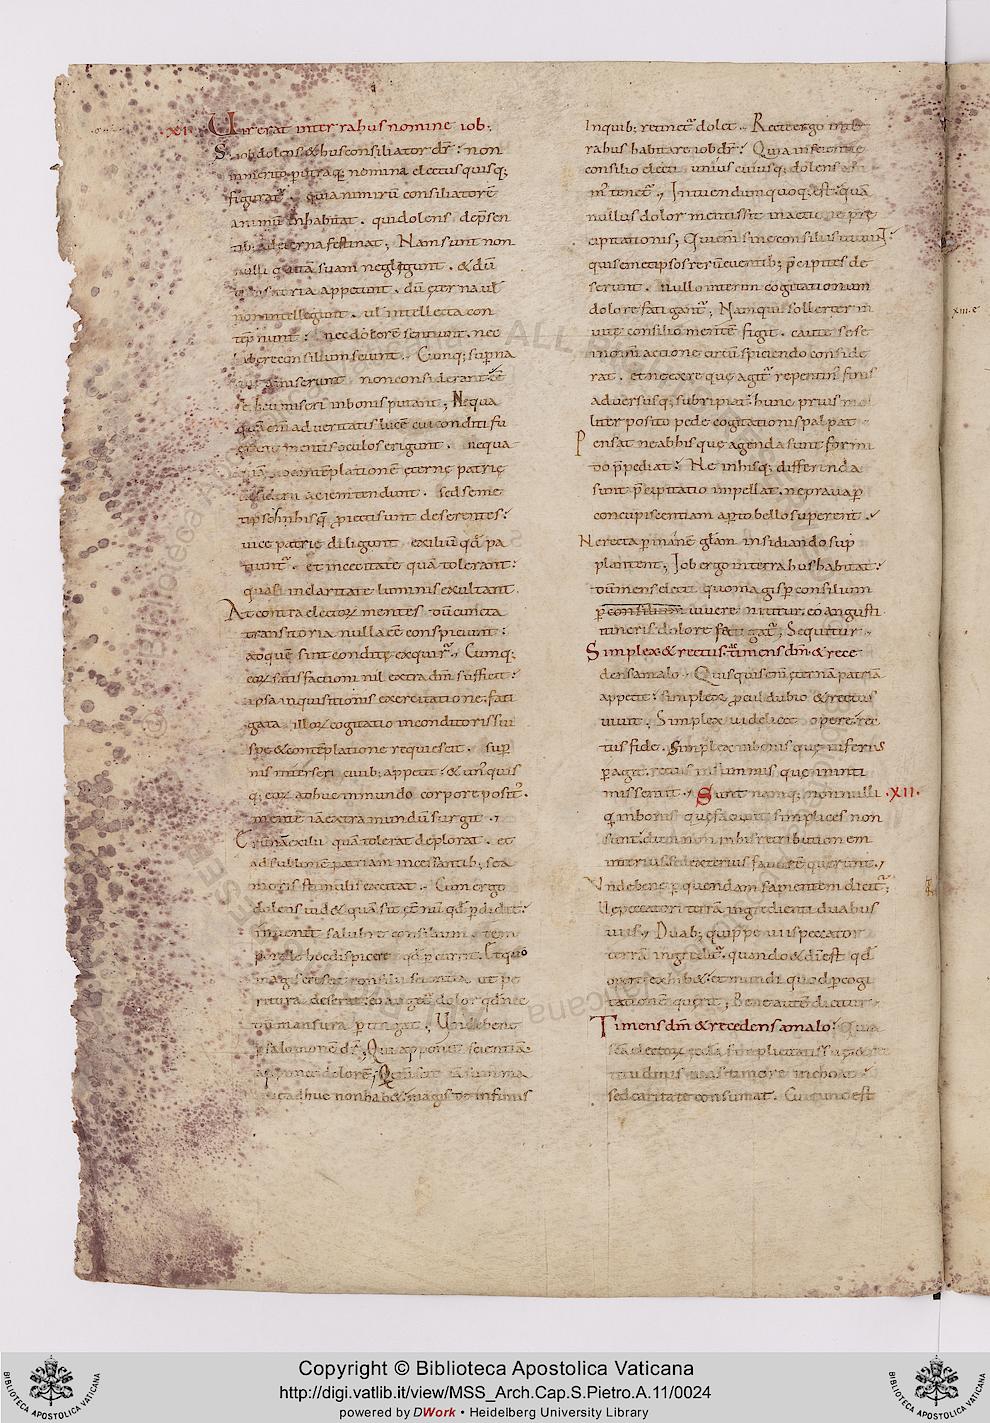 .XI. Uir erat in terra hus nomine iob;
Si iob dolens & hus consiliator dr̄: non
inmerito ꝑ utraq; nomina electus quisq;
figurat᷑. quia nimirū consiliatorē
animū inhabitat. qui dolens de p̄sen
tib; ad eterna festinat; Nam sunt non
nulli qui uitā suam neglegunt. & dū
transitoria appetunt. dū ęterna ul̄
non intellegunt. ul̄ intellecta con
tēpnunt: nec dolorē sentiunt. nec
habere consilium sciunt. Cumq; sup̄na
que amiserunt non considerant: eē
se heu miseri in bonis putant; Nequa
quā enī ad ueritatis lucē cui conditi fu
erant mentis oculos erigunt. nequa
quā ad contēplationē ęternę patrię
desiderii aciem tendunt. sed seme
tipsos in his q̄ proiecti sunt deserentes:
uice patrię diligunt exiliū qd̄ pa
tiunt᷑. et in cecitate quā tolerant:
quasi in claritate luminis exultant.
At contra electoꝝ mentes dū cuncta
transitoria nulla eē conspiciunt:
ad quę sint condite exquir᷑; Cumq;
eoꝝ satisfactioni nil extra dm̄ sufficit:
ipsa inquisitionis exercitatione fati
gata illoꝝ cogitatio in conditoris sui
spe & contēplatione requiescit. sup̄
nis interseri ciuib; appetit: & un̄ quis
q; eoꝝ adhuc in mundo corpore posit᷑.
mente iā extra mundū surgit.
Erumnā exilii quā tolerat deplorat. et
ad sublimē patriam incessantib; se a
moris stimulis excitat. Cum ergo
dolens uid& quā sit ęternū qd̄ ꝑdidit:
inuenit salubre consilium tem
porale hoc despicere qd̄ ꝑcurrit. Et quo
magis crescit consilii scientia ut pe
ritura deserat: eo auget᷑ dolor qd̄ nec
dū mansura ꝑtingat; Unde bene
ꝑ salomonē dr̄; Qui apponit scientiā
apponit dolorē; Qui enī scit iā summa
que adhuc non hab&: magis de infimis
In quib; retinet᷑ dolet. Recte ergo in ter
ra hus habitare iob dr̄: Quia in scientię
consilio electi unius cuiusq; dolens ani
m᷑ tenet᷑; Intuendum quoq; est: quā
nullus dolor mentis sit in actione pre
cipitationis; Qui enī sine consiliis uiuunt:
qui semetipsos rerū euentib; p̄cipites de
serunt. nullo interim cogitationum
dolore fatigant᷑; Nam qui sollerter in
uitę consilio mentē figit. caute sese
in omī actione circū spiciendo conside
rat. et ne ex re que agit᷑ repentin᷑ finis
aduersusq; subripiat: hunc prius mol
liter posito pede cogitationis palpat
Pensat ne ab his que agenda sunt formi
do p̄pediat: Ne in hisq; differenda
sunt p̄cipitatio impellat. ne praua ꝑ
concupiscentiam apto bello superent.
Ne recta ꝑ inanē gl̄am insidiando sup
plantent; Iob ergo in terra hus habitat:
dū mens electi quo magis ꝑ consilium
ꝑ consilium uiuere nititur. eo angusti
itineris dolore fatigat᷑; Sequitur.
Simplex & rectus. timens dm̄ & rece
dens a malo. Quisquis enī ęternā patriā
appetit: simplex ꝓcul dubio & rectus
uiuit. Simplex uidelicet opere. rec
tus fide. Simplex in bonis que inferius
ꝑagit. rectus in summis que in inti
mis sentit. Sunt namq; nonnulli .XII.
q in bonis que faciunt simplices non
sunt. dum non in his retributionem
interius. sed exterius fauorē querunt.
Unde bene ꝑ quendam sapientem dicit᷑;
Ve peccatori terrā ingredienti duabus
uiis; Duab; quippe uiis peccator
terrā ingredit᷑. quando & dī est qd̄
opere exhib&. et mundi quod ꝑ cogi
tationē querit; Bene autē dicitur
Timens dm̄ & recedens a malo: Quia
sca̅ electoꝝ ecclā simplicitatis suę & rec
titudinis uias timore inchoat:
sed caritate consumat. Cui tunc est